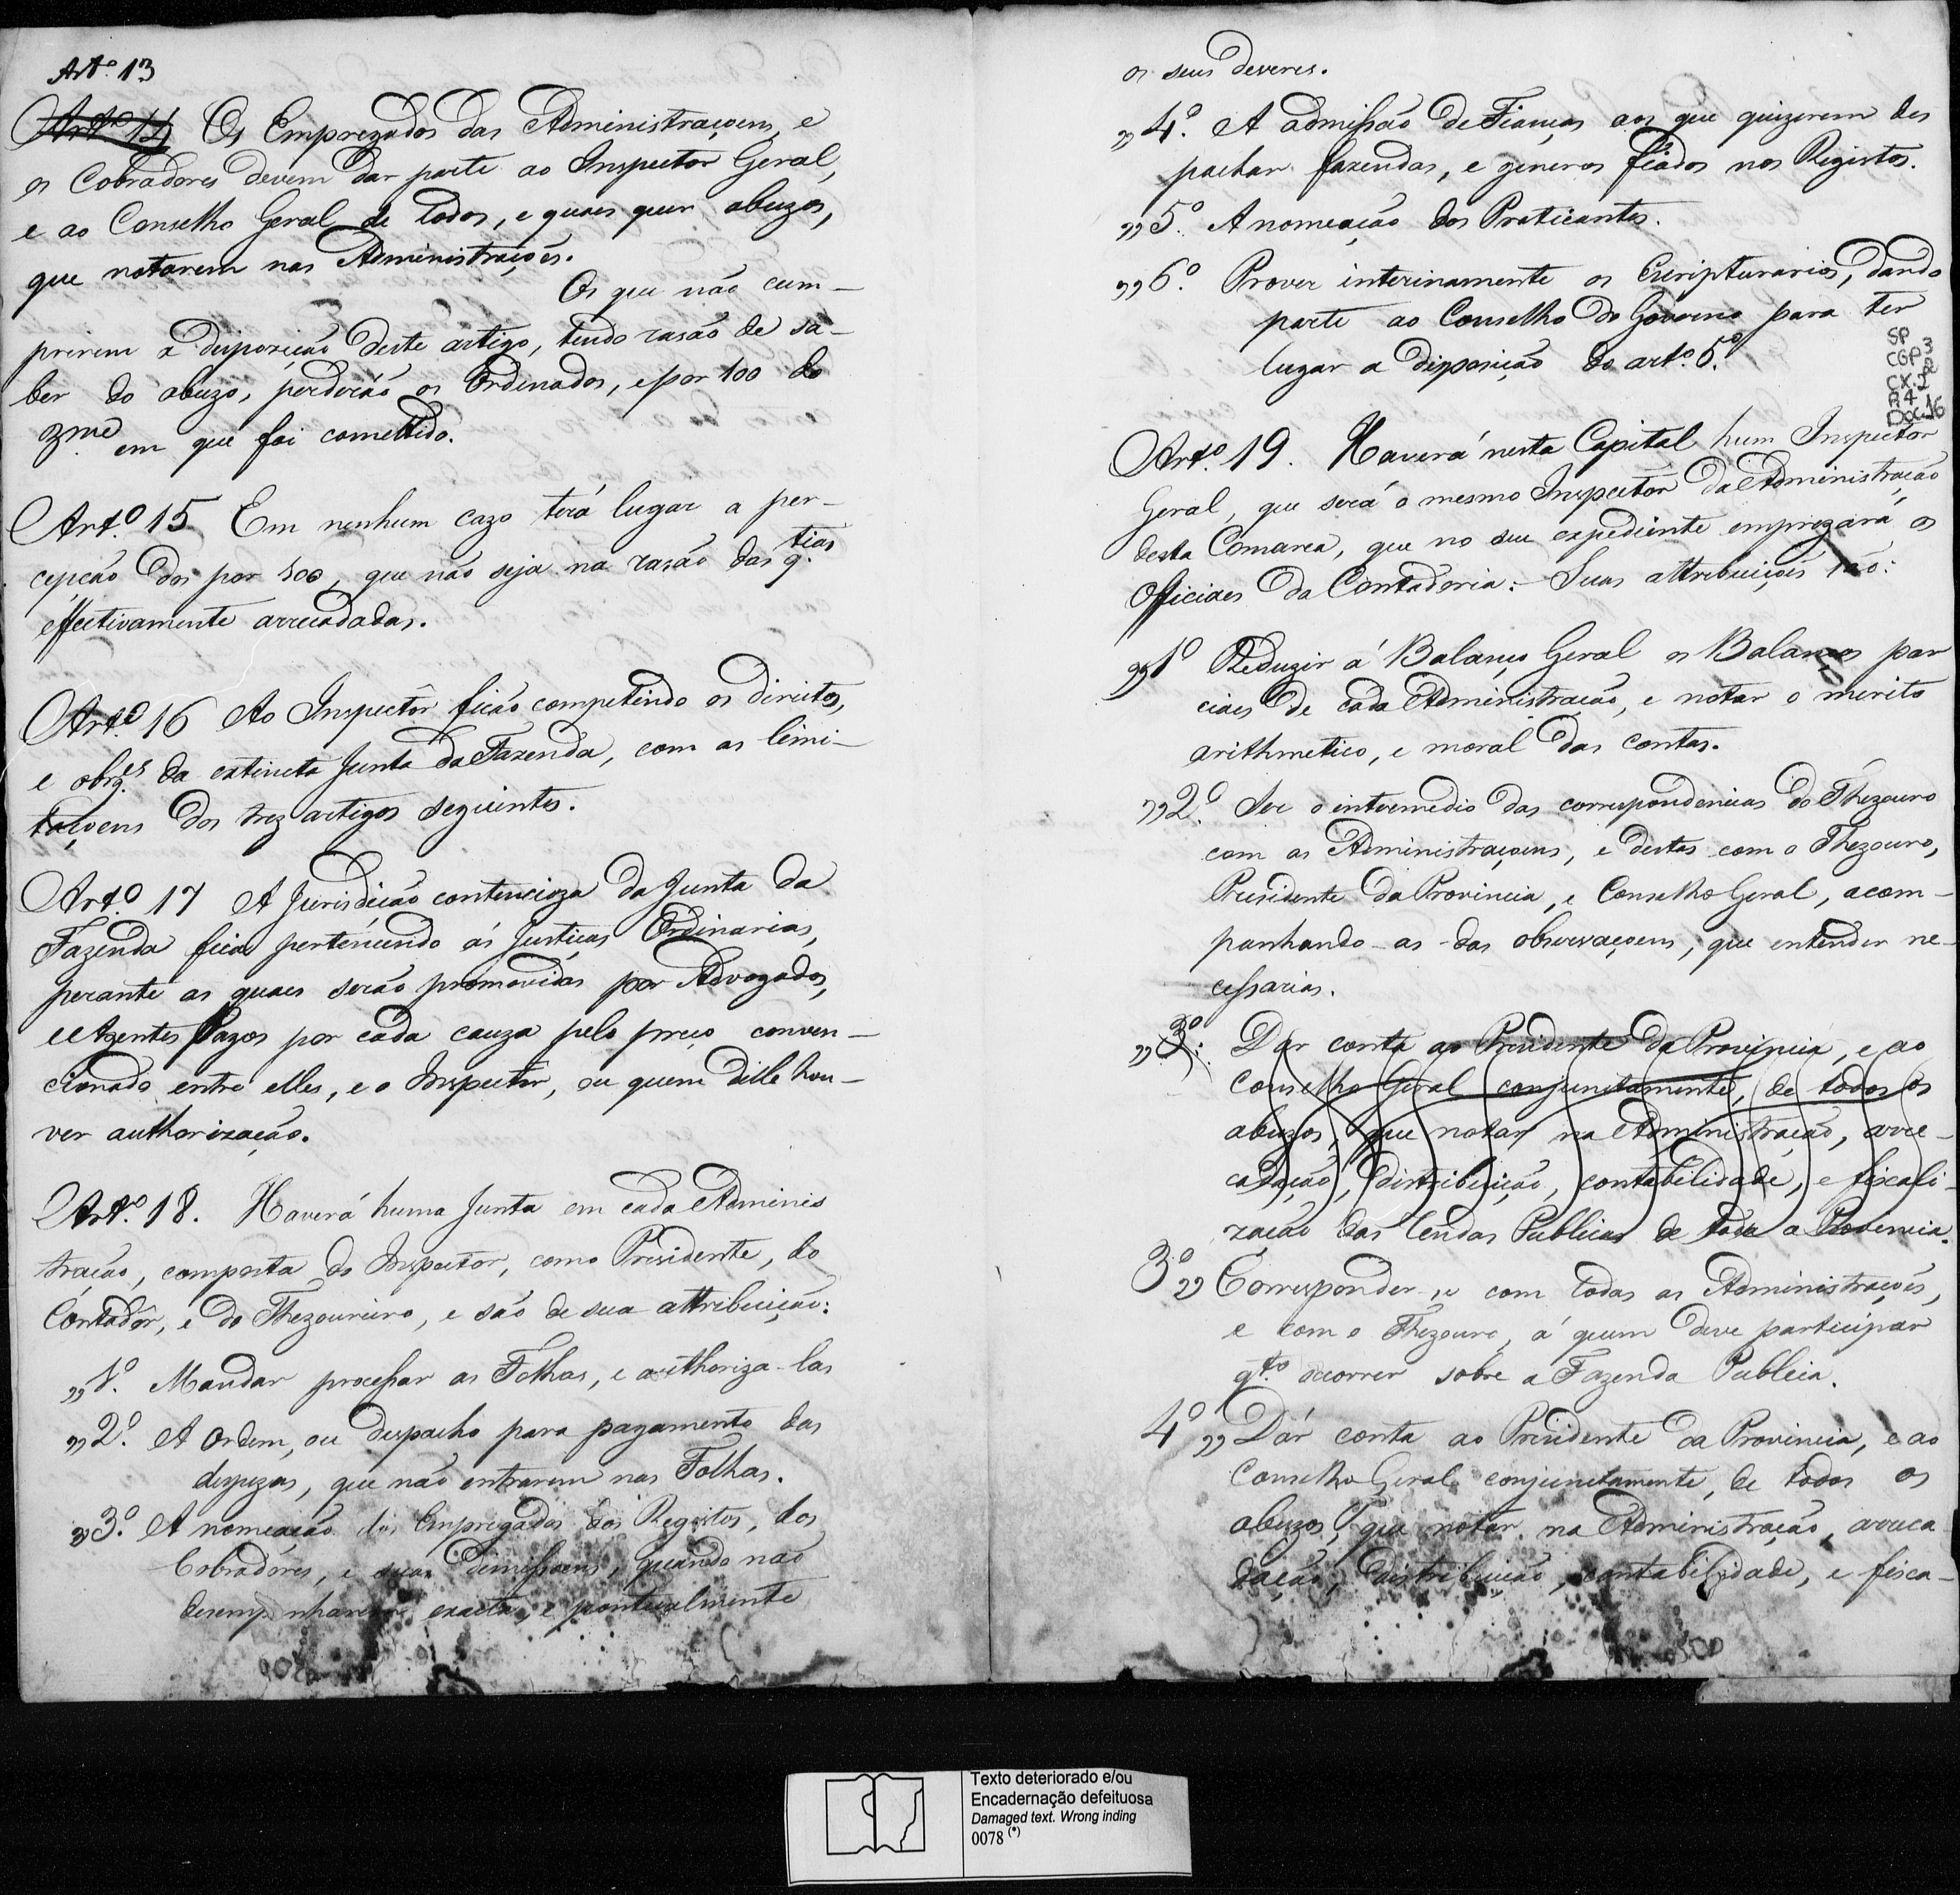 Artº 13
Artº 14 Os Empregados das Administraçoens, e
os Cobradores devem dar parte ao Inspector Geral,
e ao Conselho Geral de todos, e quaes quer abuzos,
que notarem nas Administraçoẽs.
Os que não cum-
prirem a dispozição deste artigo, tendo rasão de sa-
ber do abuzo, perderão os Ordenados, e por 100 do
em que foi comettido.
Artº 15 Em nenhum cazo terá lugar a per-
cepcão dos por 100, que não seja na rasão das q.tias
effectivamente arrecadadas.
Artº 16 Ao Inspector ficão competindo os direitos,
e obrig.es da extincta Junta da Fazenda, com as limi-
taçoens dos trez artigos seguintes.
Artº 17 A Jurisdicão contencioza da Junta da
Fazenda fica pertencendo ás Justiças Ordinarias,
perante as quaes serão promovidas por Advogados,
e Agentes Pagos por cada cauza pelo preço conven-
cionado entre elles, e o Inspector, ou quem delle hou-
ver authorização.
Artº 18. Haverá huma Junta em cada Adminis
tração, composta do Inspector, como Presidente, do
Contadôr, e do Thezoureiro, e são de sua attribuição:
„1º. Mandar processar as Folhas, e authoriza-las
„2º. A Ordem, ou despacho para pagamento das
despezas, que não entrarem nas Folhas.
„3º. A nomeação dos Empregados dos Registos, dos
Cobradóres, e suas dimissoens, quando não
desempenharem exacta, e pontualmente
os seus deveres.
„4º. A admissão de Fianças aos que quizerem des
pachar fazendas, e generos fiados nos Registos.
„5º. A nomeação dos Praticantes.
„6º. Prover interinamente os Escripturarios, dando
parte ao Conselho do Governo para ter
lugar a disposição do artº. 5º.
SP
CGP3
CX.2
P.4
Doc.16
Artº. 19. Haverá nesta Capital hum Inspector
Geral, que será o mesmo Inspector da Administração
desta Comarca, que no seu expediente empregará os
Officiaes da Contadoria: Suas attribuiçoẽs são:
„1º Reduzir á Balanço Geral os Balanços par
ciaes de cada Administração, e notar o merito
arithmetico, e moral das contas.
„2º. Ser o intermedio das correspondencias do Thezouro
com as Administraçoens, e destas com o Thezouro,
Presidente da Provincia, e Conselho Geral, acom-
panhando-as das observaçoens, que entender ne-
cessarias.
„3º. Dar conta ao Presidente da Provincia, e ao
Conselho Geral conjunctamente, de todos os
abuzos, que notar na Administração, arre-
cadação, distribuição, contabilidade, e fiscali-
zação das rendas Publicas de toda a Provincia.
3º „ Corresponder se com todas as Administraçoẽs,
e com o Thezouro, á quem deve participar
q.to occorrer sobre a Fazenda Publica.
4º „ Dár conta ao Presidente da Provincia, e ao
Conselho Geral conjunctamente, de todos os
abuzos, que notar na Administração, arreca
dação, distribuição, contabilidade, e fisca-
Texto deteriorado e/ou
Encadernação defeituosa
Damaged text. Wrong inding
0078 (*)